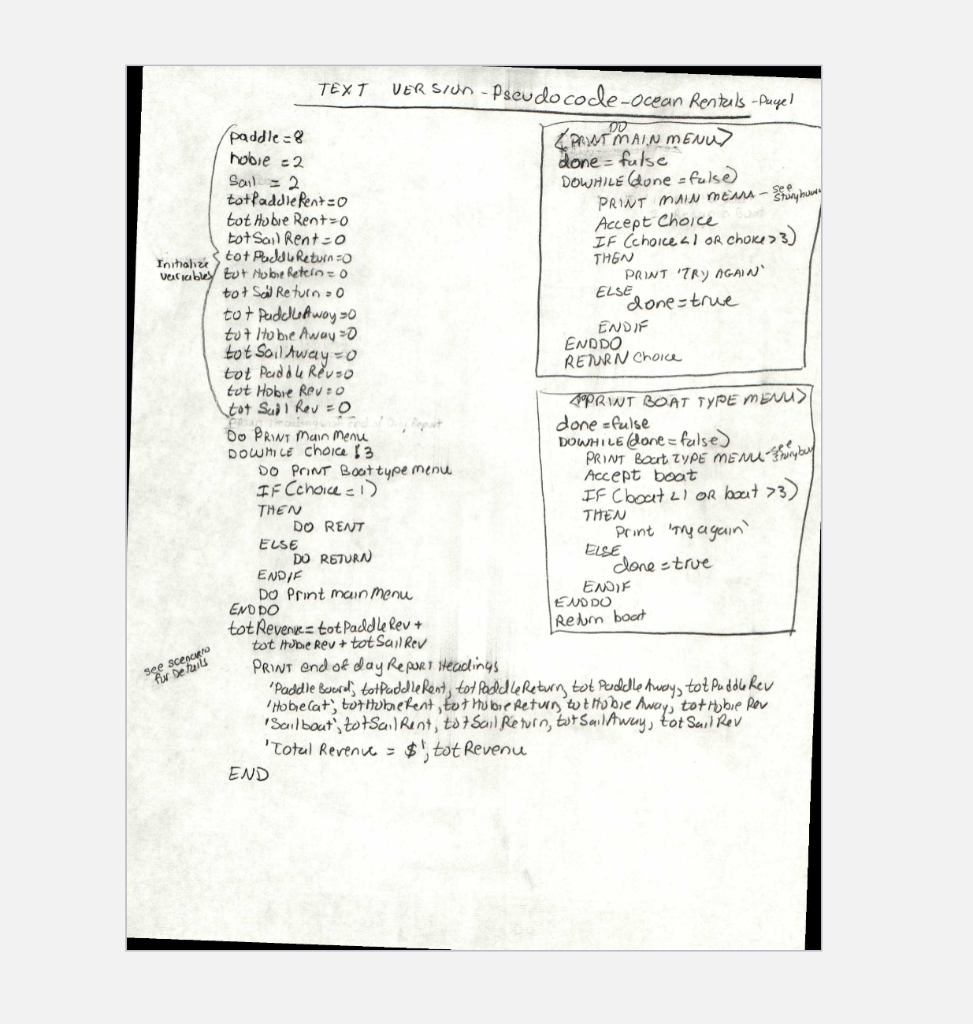 TEXT VERSION - Pseudocode - Ocean Rentals - Page 1
Initialize variables
paddle = 8
hobie = 2
Sail = 2
totPaddleRent = 0
totHobieRent = 0
totSailRent = 0
totPaddleReturn = 0
totHobieReturn = 0
totSailReturn = 0
totPaddleAway = 0
totHobieAway = 0
totSailAway = 0
totPaddleRev = 0
totHobieRev = 0
totSailRev = 0
Do PRINT Main Menu
DOWHILE Choice ! 3
DO Print Boat type menu
IF (choice = 1)
THEN
DO RENT
ELSE
DO RETURN
ENDIF
DO Print main Menu
ENDDO
totRevenue = totPaddleRev +
totHobieRev + totSailRev
See scenario for Details
PRINT end of day Report Headings
'Paddle Board', totPaddleRent, totPaddleReturn, totPaddleAway, totPaddleRev
'HobieCat', totHobieRent, totHobieReturn, totHobieAway, totHobieRev
'Sailboat', totSailRent, totSailReturn, totSailAway, totSailRev
'Total Revenue = $', totRevenue
END
DO
<PRINT MAIN MENU>
done = false
DOWHILE (done = false)
PRINT MAIN MENU - see
Accept Choice
IF (choice < 1 OR choice > 3)
THEN
PRINT 'TRY AGAIN'
ELSE
done = true
ENDIF
ENDDO
RETURN Choice
<PRINT BOAT TYPE MENU>
done = false
DOWHILE (done = false)
PRINT Boat TYPE MENU - see
Accept boat
IF (boat < 1 OR boat > 3)
THEN
Print 'Try again'
ELSE
done = true
ENDIF
ENDDO
Return boat